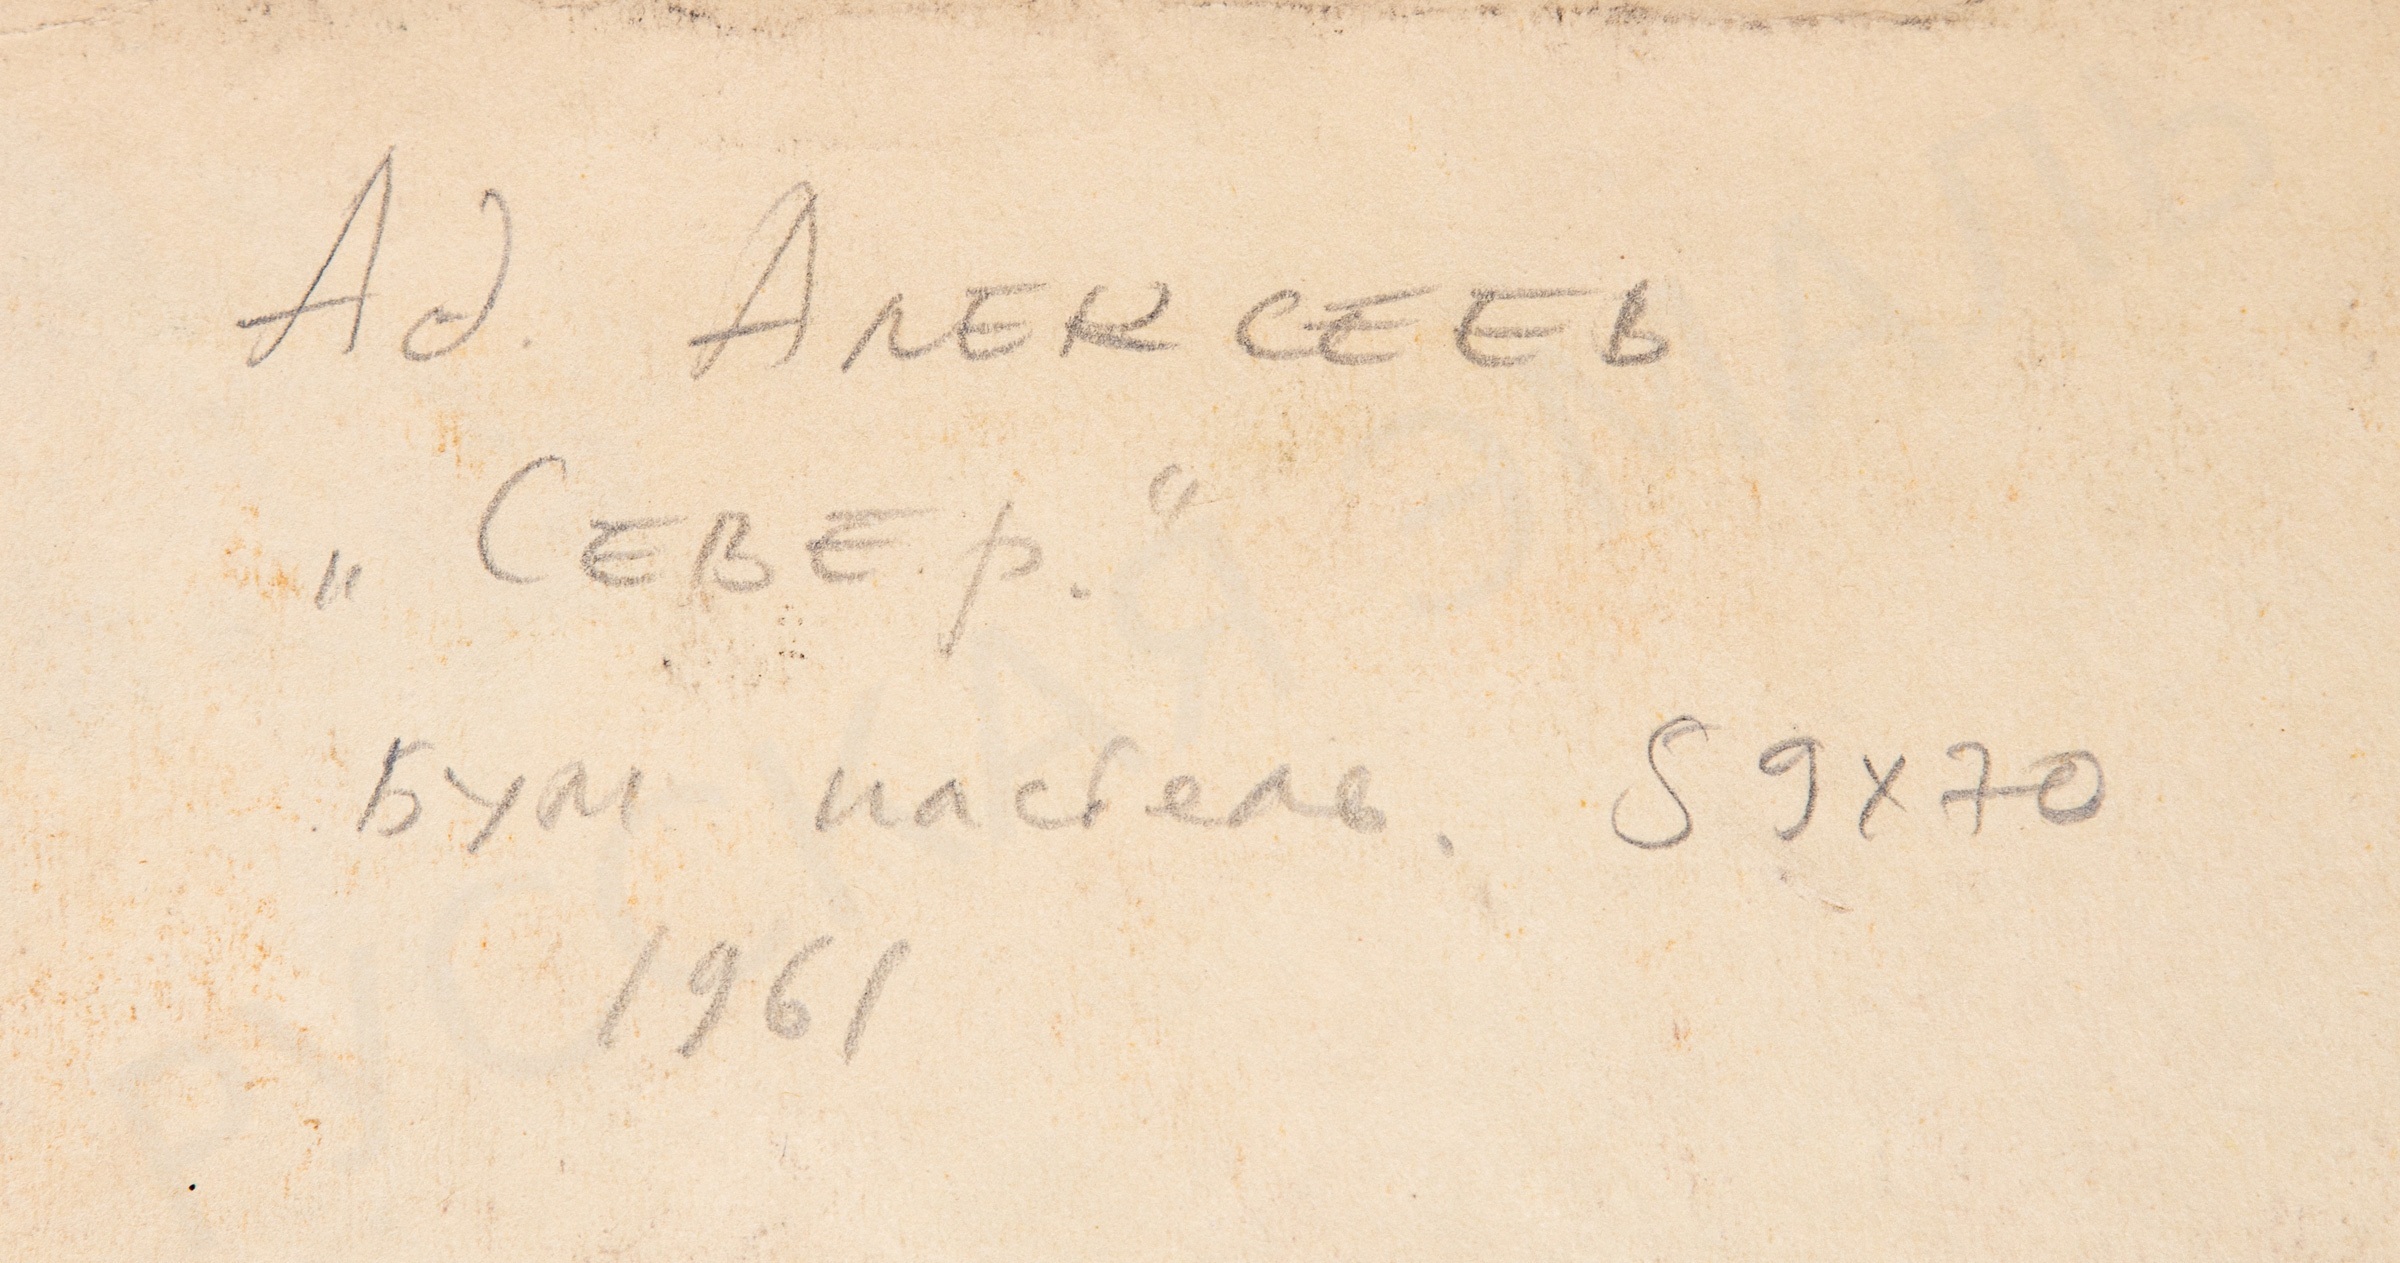 Ад. Алексеев
„Север.“
Бум пастель. 59х70
1961